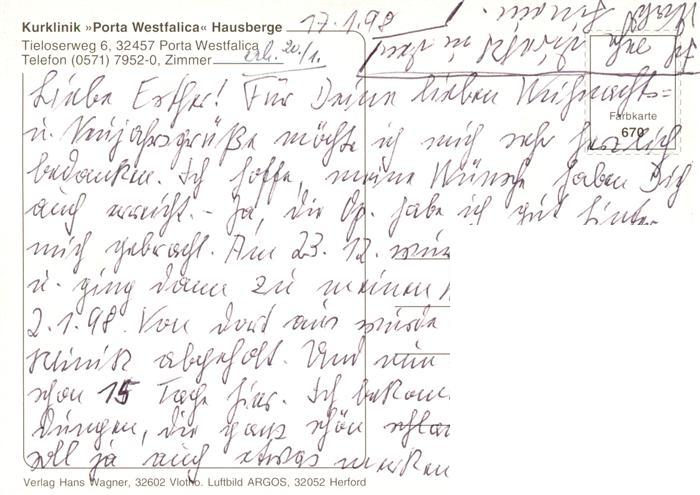 Kurklinik »Porta Westfalica« Hausberge 17.1.98
Tieloserweg 6, 32457 Porta Westfalica
Telefon (0571) 7952-0, Zimmer erh. 20/1.
Farbkarte
670
Liebe Esther! Für Deine lieben Weihnachts=
u. Neujahrsgrüße möchte ich mich sehr herzlich
bedanken. Ich hoffe, meine Wünsche haben Dich
auch erreicht. - Ja, die Op. habe ich gut hinter
mich gebracht. Am 23. 12.
u. ging dann zu meinen
2.1.98. Von dort aus wurde
Klinik abgeholt. Und nun
schon 15 Tage hier. Ich
die ganz schön
soll ja auch etwas merken
Verlag Hans Wagner, 32602 Vlotho. Luftbild ARGOS, 32052 Herford